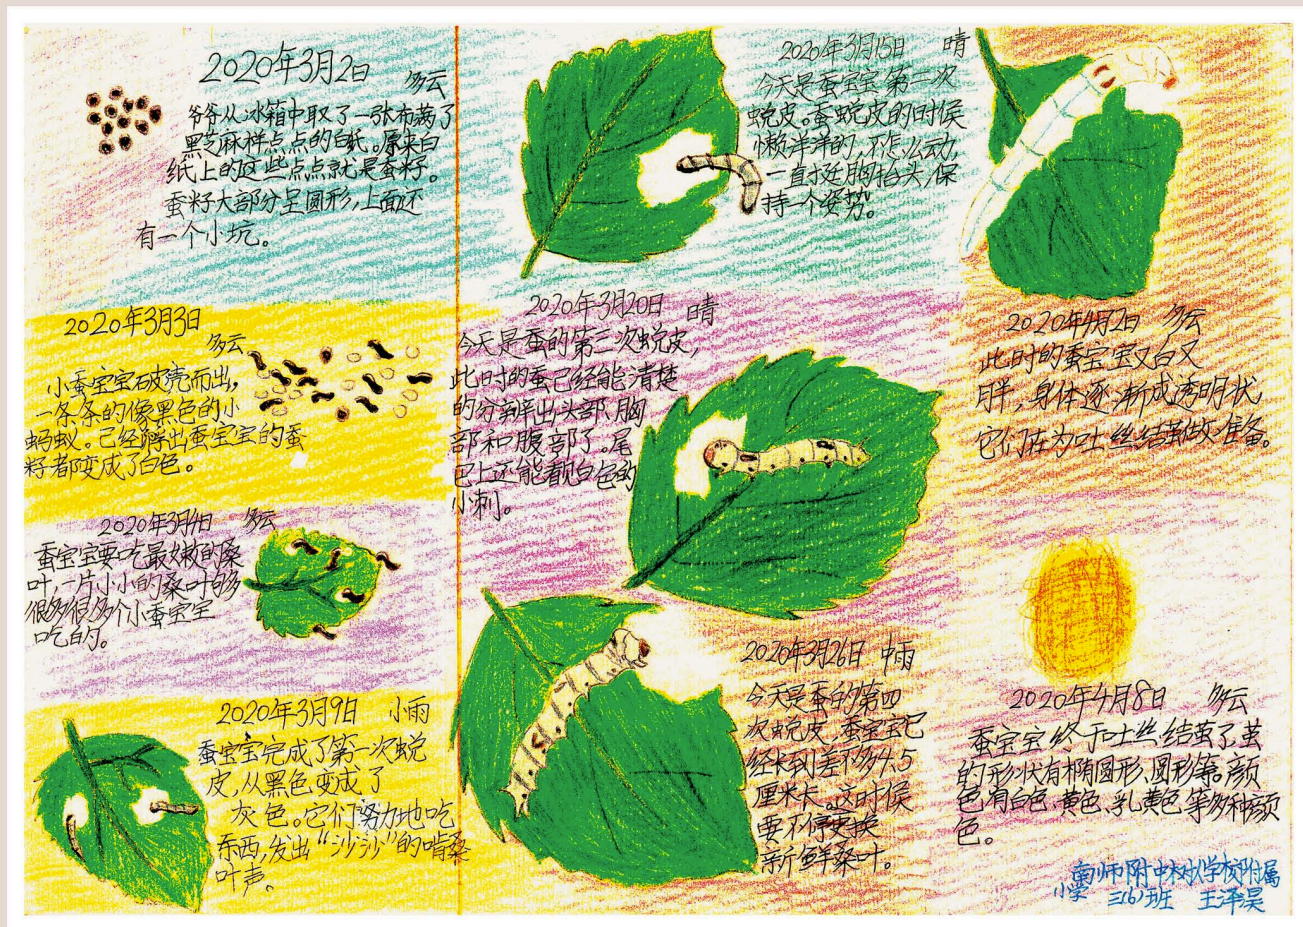 2020年3月2日 多云
爷爷从冰箱中取了一张布满了
黑芝麻样点点的白纸。原来白
纸上的这些点点就是蚕籽。
蚕籽大部分呈圆形,上面还
有一个小坑。
2020年3月3日
多云
小蚕宝宝破壳而出,
一条条的像黑色的小
蚂蚁。已经孵出蚕宝宝的蚕
籽都变成了白色。
2020年3月4日 多云
蚕宝宝要吃最嫩的桑
叶,一片小小的桑叶够
很多很多个小蚕宝宝
吃的。
2020年3月9日 小雨
蚕宝宝完成了第一次蜕
皮,从黑色变成了
灰色。它们努力地吃
东西,发出“沙沙”的啃桑
叶声。
2020年3月15日 晴
今天是蚕宝宝第二次
蜕皮。蚕蜕皮的时候
懒洋洋的,不怎么动,
一直挺胸抬头,保
持一个姿势。
2020年3月20日 晴
今天是蚕的第三次蜕皮,
此时的蚕已经能清楚
的分辨出头部、胸
部和腹部了。尾
巴上还能看见白色的
小刺。
2020年3月26日 中雨
今天是蚕的第四
次蜕皮,蚕宝宝已
经长到差不多4.5
厘米长。这时候
要不停更换
新鲜桑叶。
2020年4月2日 多云
此时的蚕宝宝又白又
胖,身体逐渐成透明状,
它们在为吐丝结茧做准备。
2020年4月8日 多云
蚕宝宝终于吐丝结茧了,茧
的形状有椭圆形、圆形等。颜
色有白色、黄色、乳黄色等多种颜
色。
南师附中树人学校附属
小学 三(6)班 王泽昊